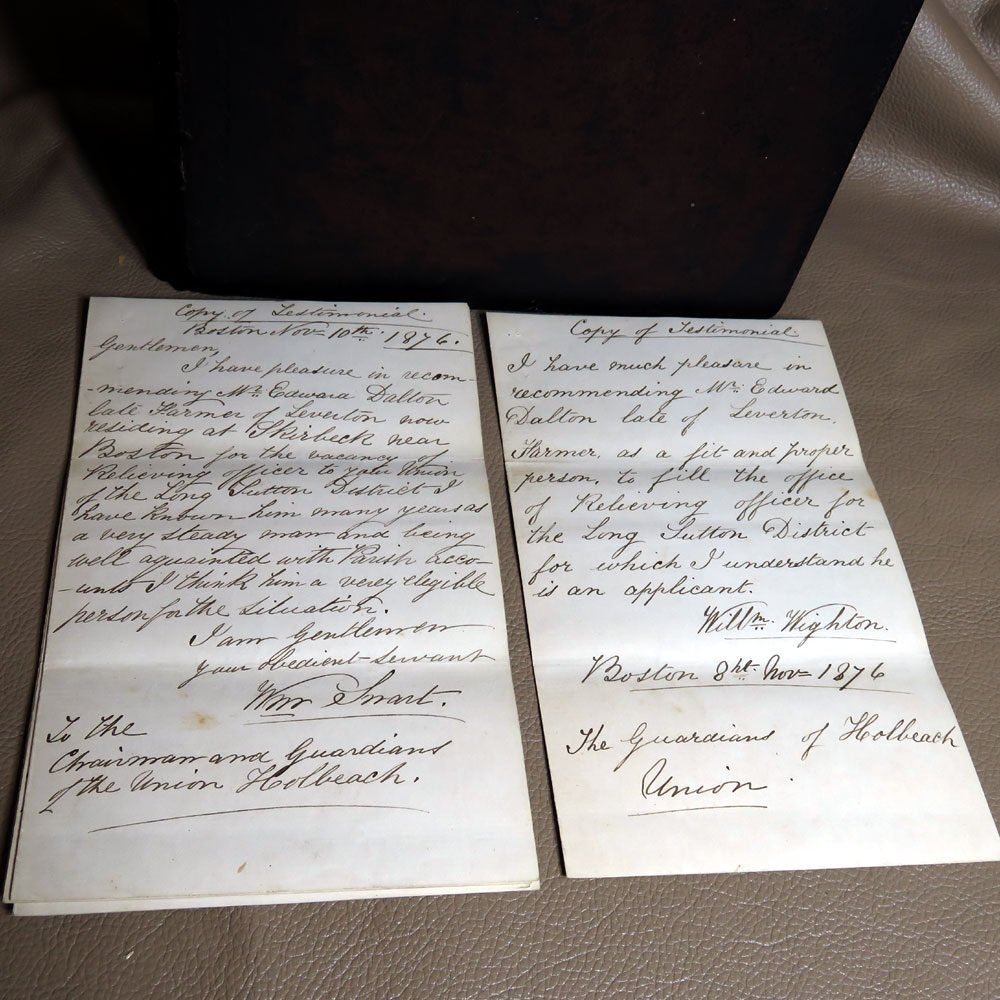 Copy of Testimonial.
Boston Nov= 10th. 1876.
Gentlemen,
I have pleasure in recom-
-mending Mr. Edward Dalton
late Farmer of Leverton now
residing at Skirbeck near
Boston for the vacancy of
Relieving officer to your Union
of the Long Sutton District I
have known him many years as
a very steady man and being
well aquainted with Parish acco-
-unts I think him a verey elegible
person for the situation.
I am Gentlemen
your obedient servant
Wm Swart.
To the
Chairman and Guardians
of the Union Holbeach.
Copy of Testimonial.
I have much pleasure in
recommending Mr. Edward
Dalton late of Leverton.
Farmer, as a fit and proper
person, to fill the office
of Relieving officer for
the Long Sutton District
for which I understand he
is an applicant.
Willm. Wighton.
Boston 8ht. Nov= 1876
The Guardians of Holbeach
Union